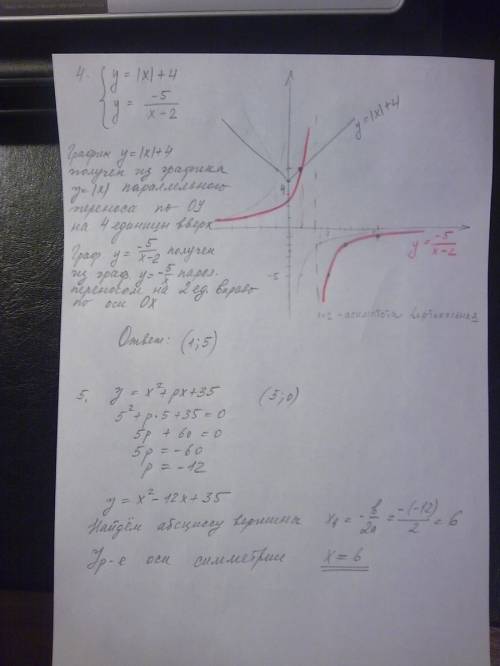 4. { y = |x| + 4
y = -5/(x-2)
y=|x|+4
4
График y=|x|+4
получен из графика
y=|x| параллельного
переноса по OY
на 4 единицы вверх
Граф y = -5/(x-2) получен
из граф y=-5/x парал.
переносом на 2 ед. вправо
по оси OX
y = -5/(x-2)
-5
x=2 - асимптота вертикальная
Ответ: (1;5)
5. y = x²+px+35 (5;0)
5²+p·5+35=0
5p + 60 = 0
5p = -60
p = -12
y = x²-12x+35
Найдём абсциссу вершины x₀ = -b/2a = -(-12)/2 = 6
Ур-е оси симметрии x = 6